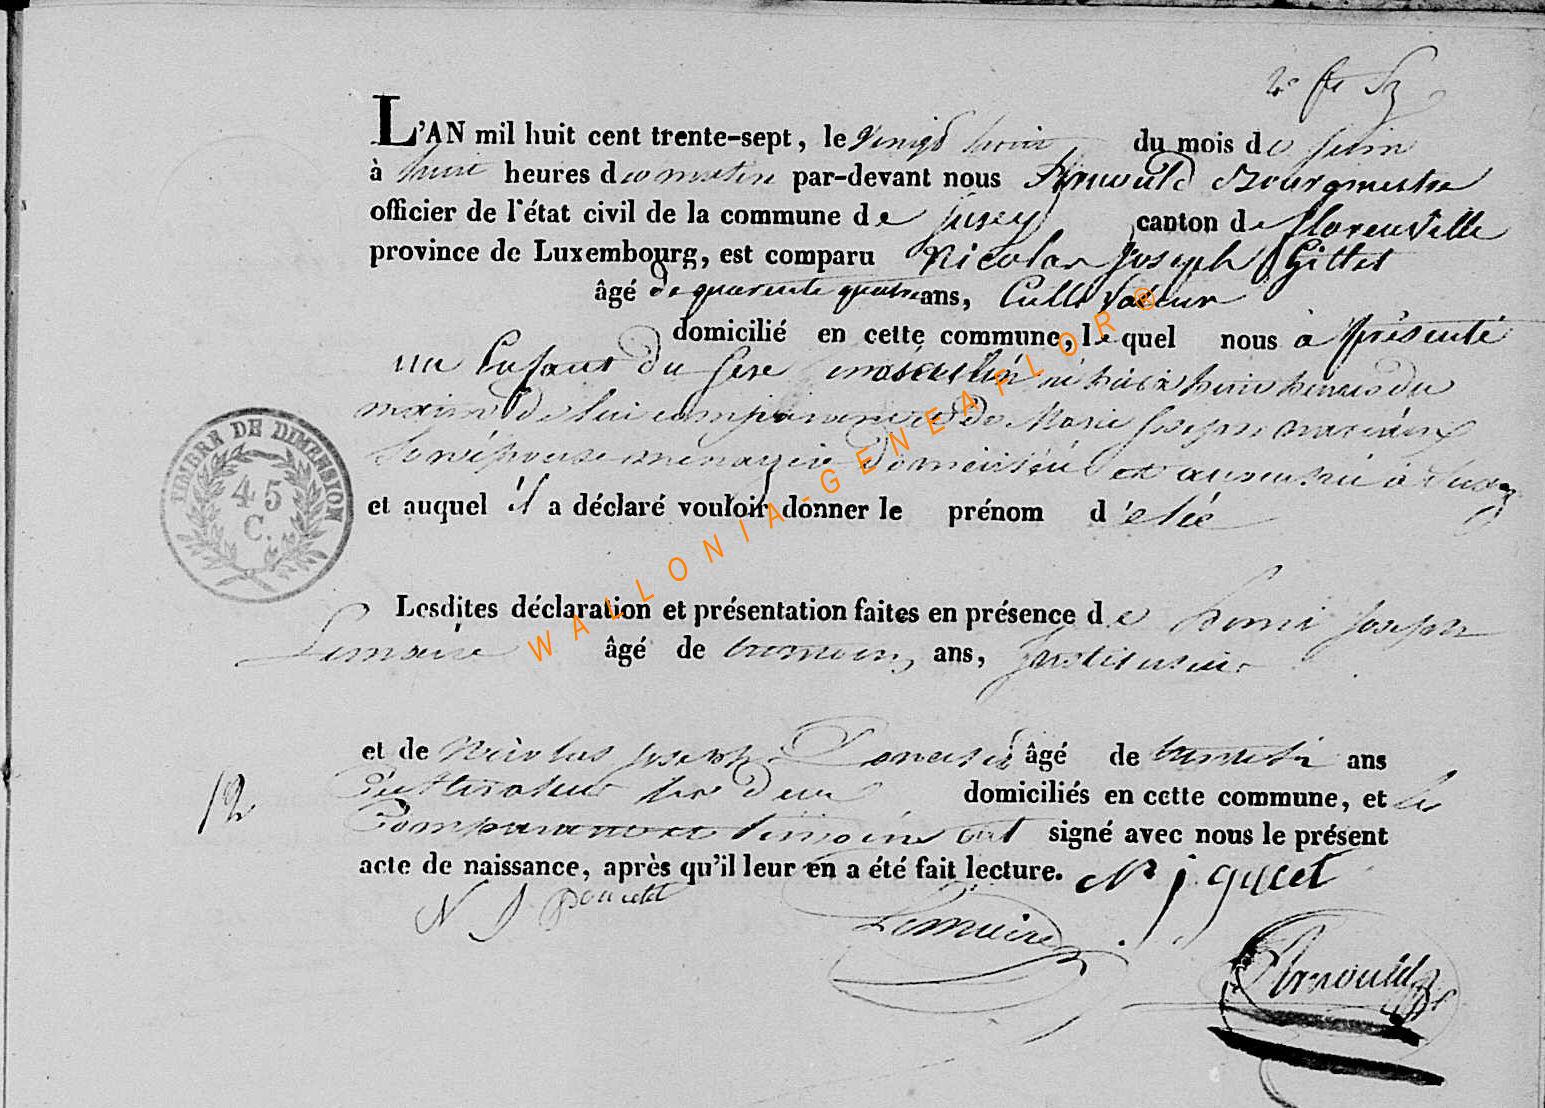 L'AN mil huit cent trente-sept, le Vingt huit du mois de juin
à huit heures du matin par-devant nous Arnould Bourgmestre
officier de l'état civil de la commune de jusey canton de florenville
province de Luxembourg, est comparu Nicolas joseph Gillet
âgé de quarente quatre ans, Cultivateur
domicilié en cette commune, le quel nous a présenté
un Enfant du sexe masculin né huit heures du
matin de lui comparant et de Marie joseph
son épouse ménagère domiciliée et à
et auquel il a déclaré vouloir donner le prénom d'elie
TIMBRE DE DIMENSION
45
C.
Lesdites déclaration et présentation faites en présence de henri joseph
Lemaire âgé de ans, instituteur
et de Nicolas joseph âgé de ans
Cultivateur deux domiciliés en cette commune, et les
Comparant et témoins ont signé avec nous le présent
acte de naissance, après qu'il leur en a été fait lecture. N j gillet
N J poncelet
Lemaire
Arnould
WALLONIA-GENEAFLOR®